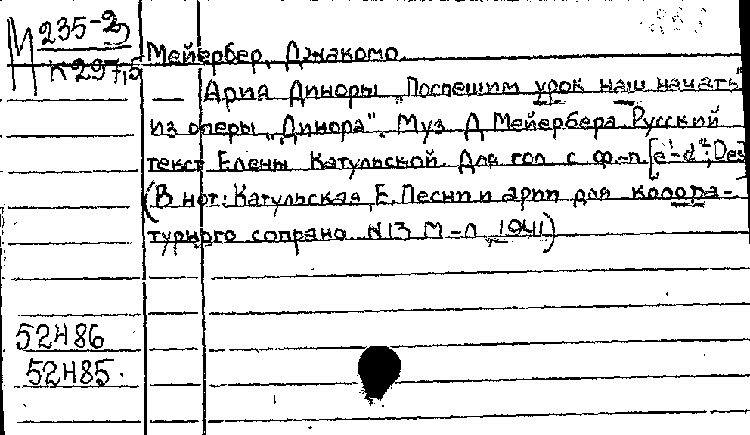 М 235-2
К 297,5
Мейербер, Джакомо.
— Ария Диноры „Поспешим урок наш начать"
из оперы „Динора". Муз Д Мейербера. Русский
текст Елены Катульской. Для гол с ф.-п. [e¹-d²; Des]
(В нот: Катульская, Е. Песни и арии для колора-
турного сопрано N13 М-Л 1941)
52Н86
52Н85.